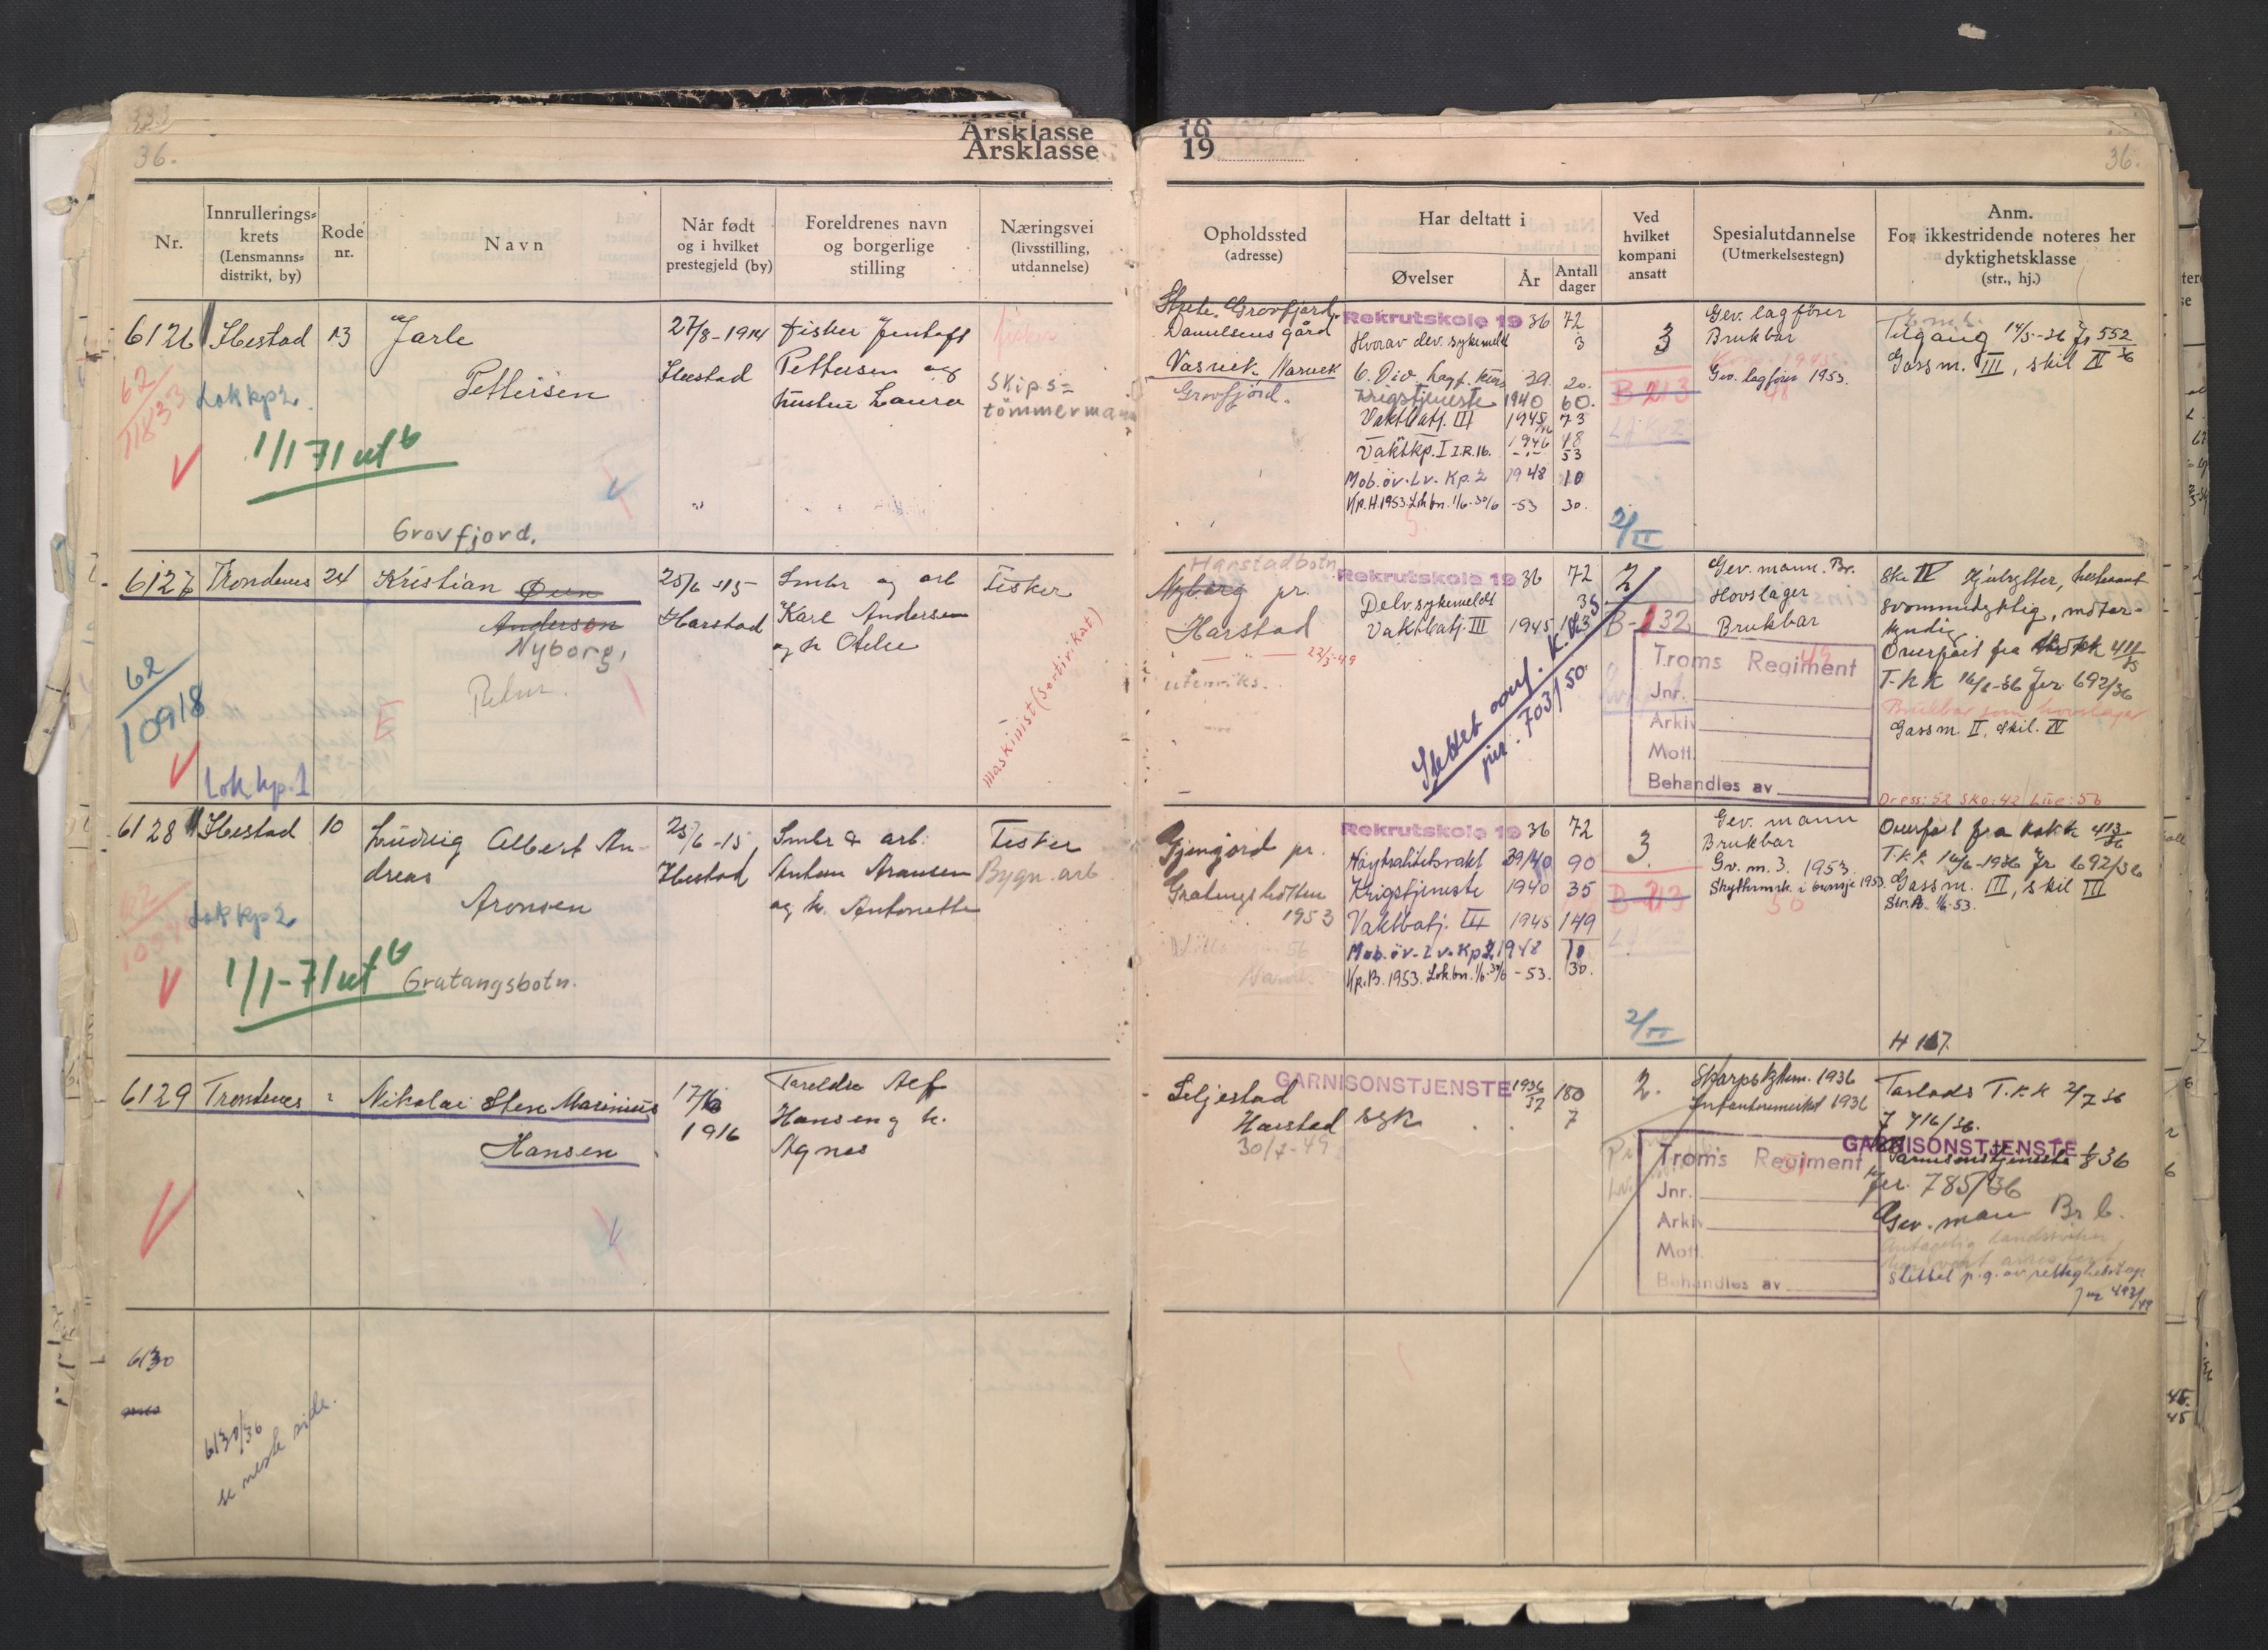 Årsklasse
Årsklasse
36.
Nr.
Innrullerings=
krets
(Lensmanns=
distrikt, by)
Rode
nr.
Navn
Når født
og i hvilket
prestegjeld (by)
Foreldrenes navn
og borgerlige
stilling
Næringsvei
(livsstilling,
utdannelse)
6126 Ibestad 13 Jarle
Pettersen
27/8-1914
Ibestad
Fisker Jentoft
Pettersen og
hustru Laura
fisker
Skips=
tömmermann
62
11833
Lok kp 2.
1/1 71 utg
Grovfjord.
6127 Trondenes 24 Kristian Øien
Andersen
Nyborg,
25/6-15
Harstad
Smbr og arb
Karl Andersen
og h Otelie
Fisker
maskinist (sertifikat)
62
10918
Lok kp. 1
6128 Ibestad 10 Ludvig Albert An-
dreas
Aronsen
25/6-15
Ibestad
Smbr & arb.
Anton Aronsen
og h. Antonette
Fisker
Bygn. arb
62
Lok kp 2
1/1-71 utg
Gratangsbotn.
6129 Trondenes Nikolai Sten Marinius
Hansen
17/6
1916
Foreldre Alf
Hansen og h.
Agnes
6130
6130/36
se neste side.
16
19
36.
Opholdssted
(adresse)
Har deltatt i
Øvelser
År
Antall
dager
Ved
hvilket
kompani
ansatt
Spesialutdannelse
(Utmerkelsestegn)
Anm.
For ikkestridende noteres her
dyktighetsklasse
(str., hj.)
Grovfjord
Danielsens gård
Vasvik Narvik
Grovfjord.
Rekrutskole 19 36 72
Hvorav dev. sykemeldt 3
6. Div. hagf. kurs 39. 20.
Krigstjeneste 1940 60.
Vaktbatj. III 1945 73
Vaktkp. I I.R.16. 1946 48
53
Mob. öv. Lv. Kp. 2 1948 10
Kp.H.1953 Lok bn. 1/6-30/6 -53 30.
3
B-213
2/II
Gev. lagförer
Brukbar
Gev. lagförer 1953.
48
Tilgang 14/5-36 Jr 552/36
Gassm. III, skil II
Harstadbotn
Nyborg pr.
Harstad
22/3-49
utenriks.
Rekrutskole 19 36 72
Delv. sykemeldt 35
Vaktbatj. III 1945
Slettet
jnr. 703/50
2/
B-132
Gev. mann. Br.
Hovslager
Brukbar
49
Troms Regiment
Jnr.
Arkiv
Mott.
Behandles av
Ski IV Hjulrytter, hestvant
svømmedyktig, motor-
kyndig
Overført fra
T.K.K 16/6-36 Jnr 692/36
Brukbar som hovslager
Gassm. II, Skil. IV
Dress: 52 Sko: 42 Lue: 56
Gjengjord pr.
Gratangsbotten
1953
Rekrutskole 19 36 72
Nøytralitetsvakt 39/40 90
Krigstjeneste 1940 35
Vaktbatj. III 1945 149
Mob. öv. Lv. Kp 2 1948 10
Kp.B. 1953. Lok bn. 1/6-30/6 -53. 30.
3.
B-213
2/II
Gev. mann
Brukbar
Gv. m. 3. 1953.
Skyttermrk. i bronsje 1953.
50
Overført fra
T.K.K. 16/6-1936 Jr 692/36
Gassm. III, skil III
Str. A. 1/6-53.
H 167.
Seljestad
Harstad
30/7-49
GARNISONSTJENSTE 1936/37 180
syk 7
2.
Skarpskyttem. 1936
Infanterimerket 1936
Troms Regiment
Jnr.
Arkiv
Mott.
Behandles av
T.K.K 2/7 36
J 716/36.
GARNISONSTJENSTE
Garnisonstjeneste 1/8 36
jnr. 785/36
Gev. mann Br b.
Antagelig landssviker
Slettet p.g. av rettighetstap
Jnr 493/49